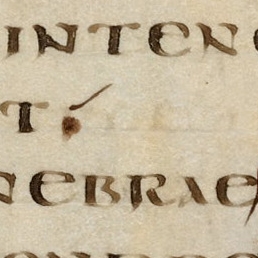 INTEN
T
NEBRAE